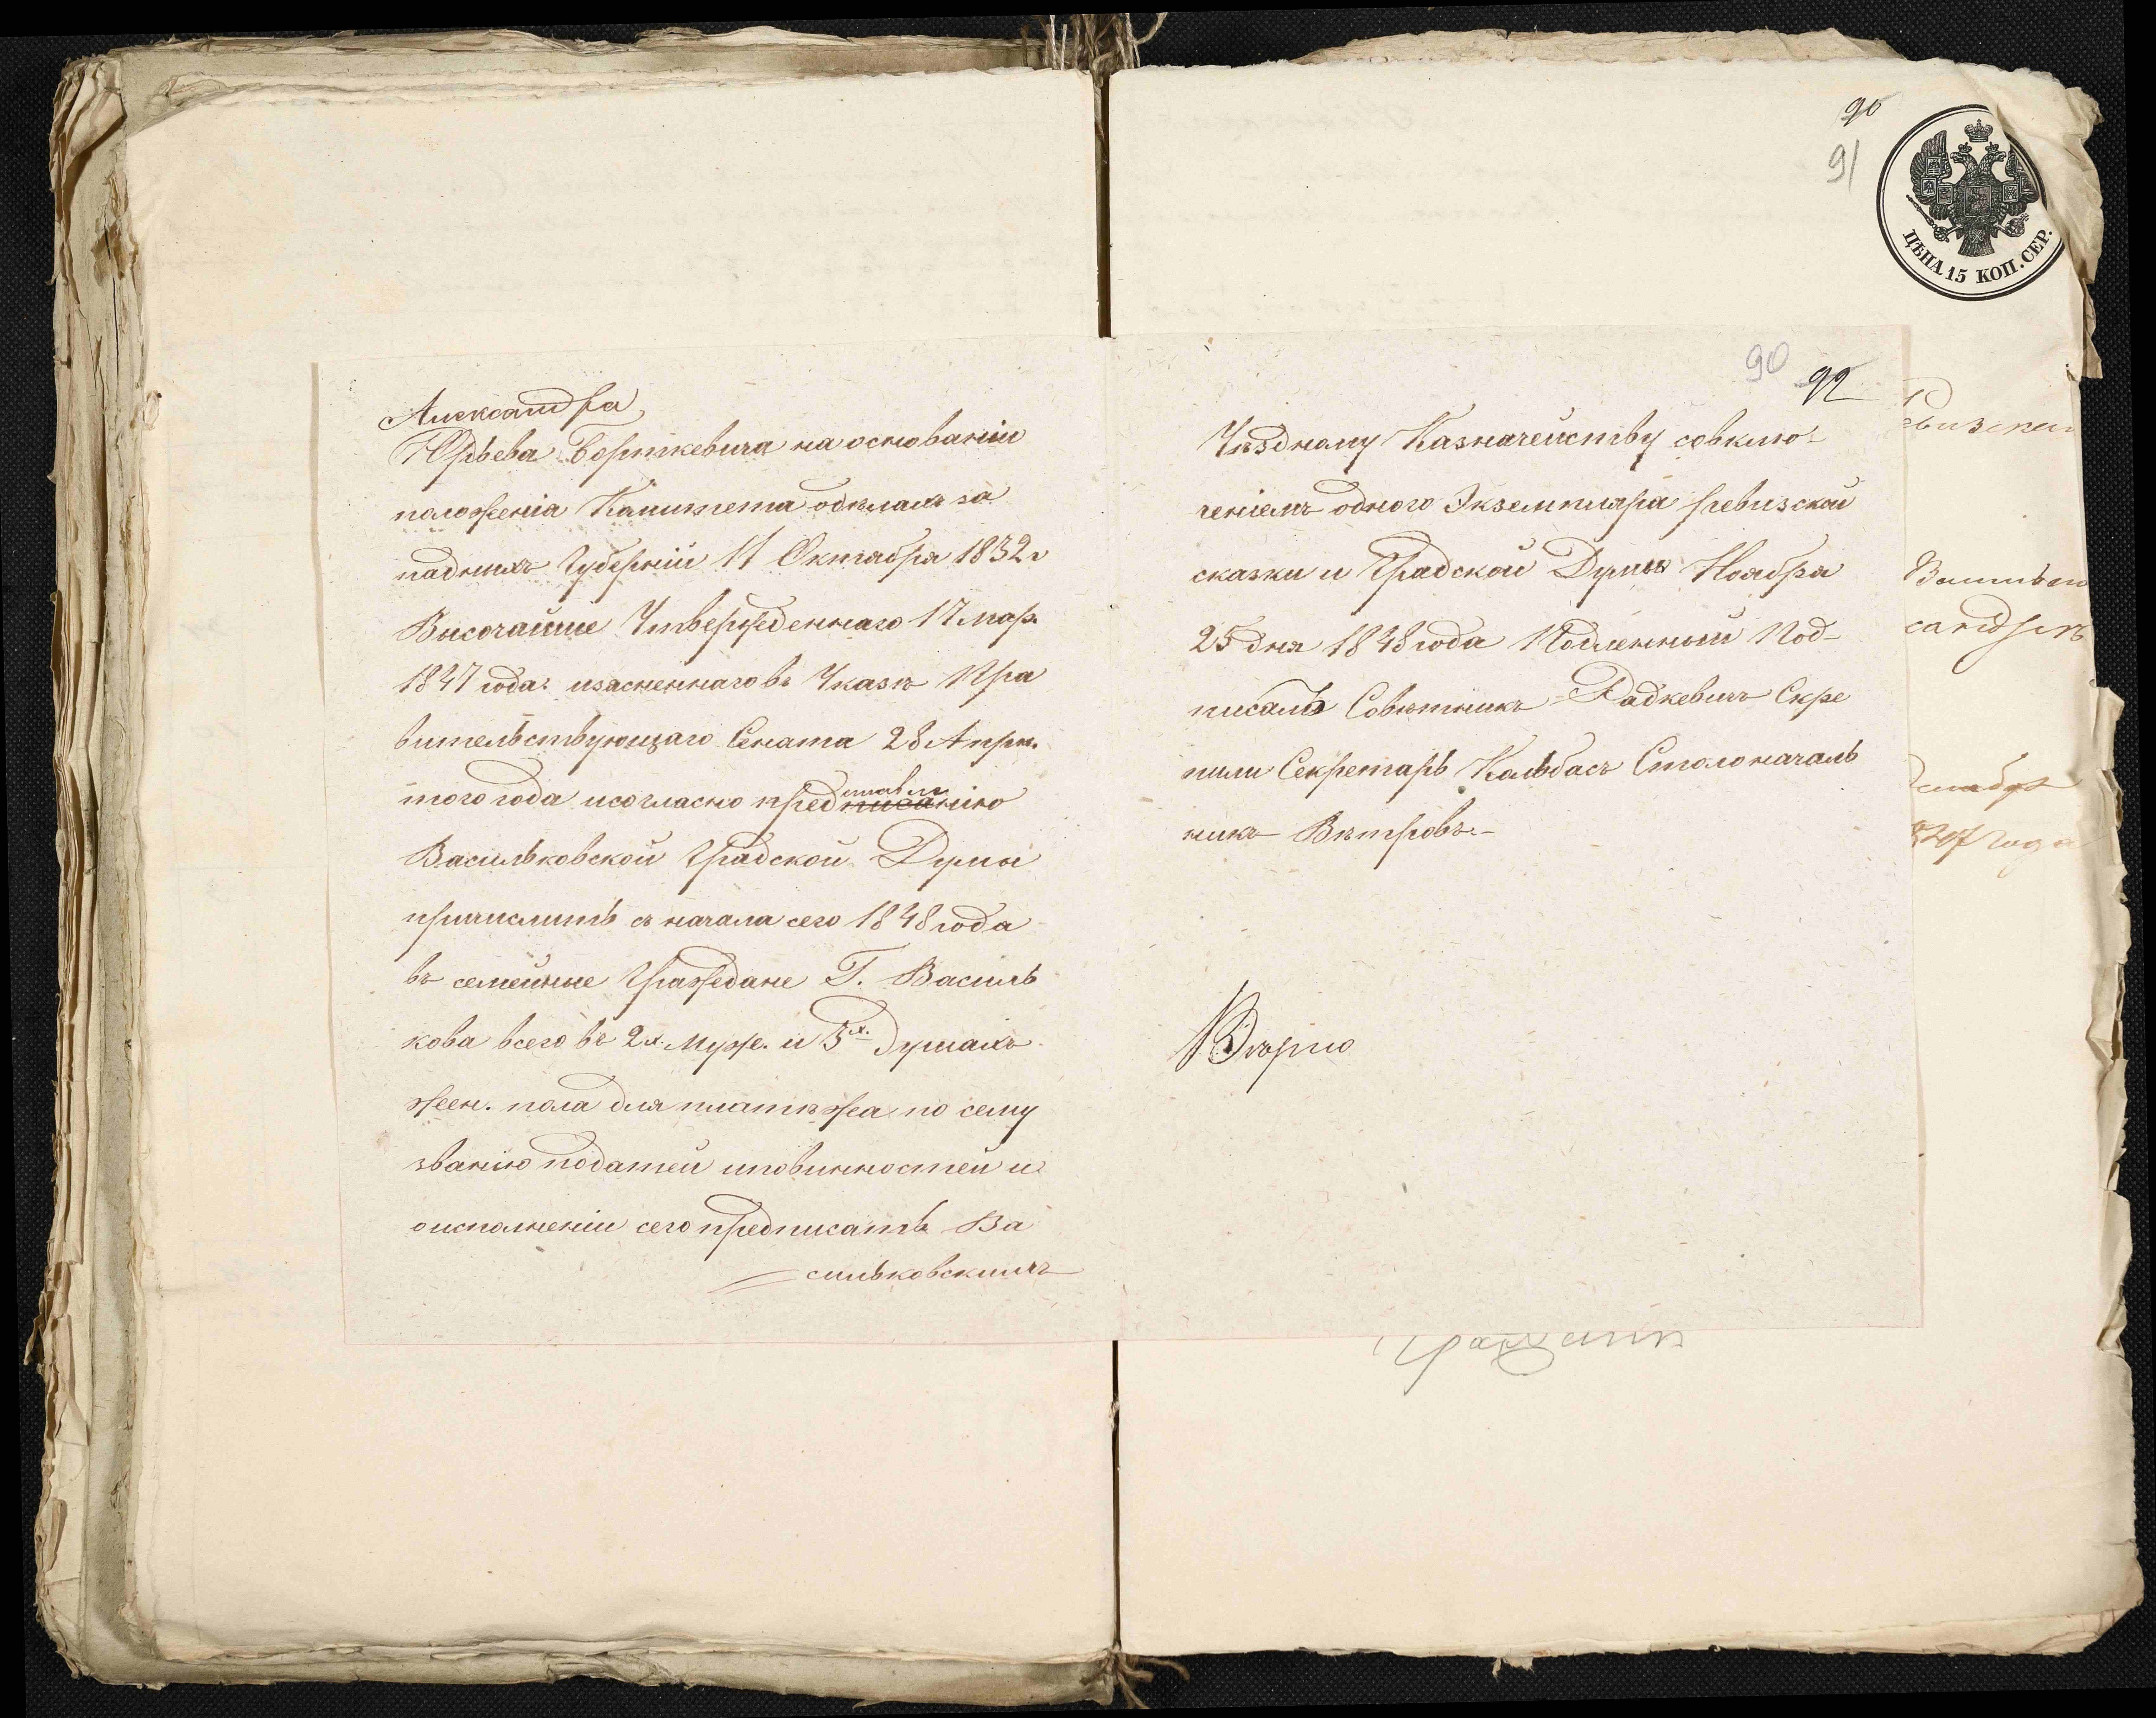 Александра
Юрьева Борткевича на основаніи
положенія Камитета одѣлахъ за
падныхъ Губерній 11 Октабря 1832 г
Высочайше Утвержденнаго 17 мар.
1847 года изасненнаго въ Указѣ Пра
вительствующаго Сената 28 Апрѣ.
того года исогласно предписанію
ставле
Васильковской Градской Думы
причислить съ начала сего 1848 года
въ семейные Граждане Г. Василь
кова всего въ 2х. муж. и 3х. душахъ
жен. пола для платѣжа по сему
званію податей иповинностей и
оисполненіи сего предписать Ва
сильковскимъ
90
91
ЦѢНА 15 КОП. СЕР.
90
92
Уѣздному Казначейству совклю-
ченіемъ одного Экземпляра ревизской
сказки и Градской Думы Ноября
25 дня 1848 года Подленный Под-
писалъ Совѣтникъ Радкевичъ Скре
пили Секретарь Кальбасъ Столоначаль
никъ Вѣтровъ.-
Вѣрно
года